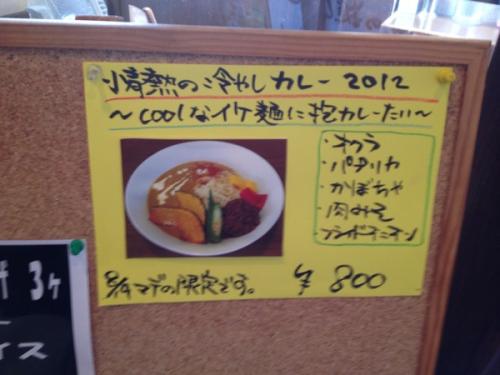 情熱の冷やしカレー 2012
～COOLなイケ麺に抱カレーたい～
・オクラ
・パプリカ
・かぼちゃ
・肉みそ
8/19マデの限定です。
¥ 800
3ヶ
イス